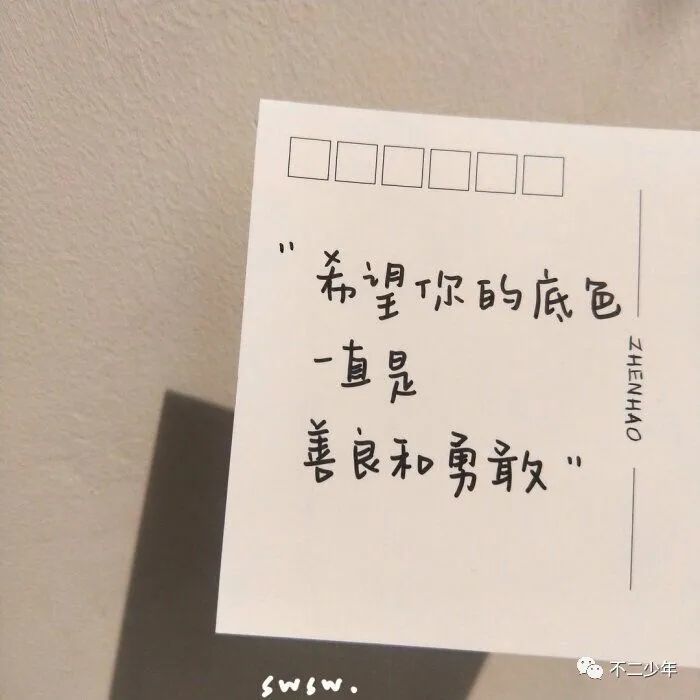 "希望你的底色
一直是
善良和勇敢"
ZHENHAO
swsw.
不二少年